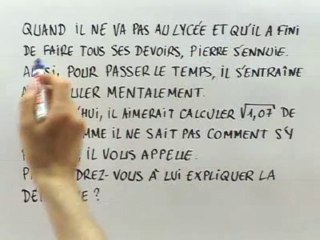 QUAND IL NE VA PAS AU LYCÉE ET QU'IL A FINI
DE FAIRE TOUS SES DEVOIRS, PIERRE S'ENNUIE.
POUR PASSER LE TEMPS, IL S'ENTRAÎNE
MENTALEMENT.
IL AIMERAIT CALCULER √1,07 DE
IL NE SAIT PAS COMMENT S'Y
IL VOUS APPELLE.
VOUS À LUI EXPLIQUER LA
?